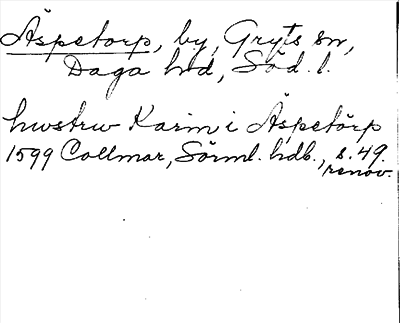 Äspetorp, by, Gryts sn,
Daga hd, Söd. l.
hwstrw Karin i Äspetörp
1599 Collmar, Sörml. hdb., s. 49.
renov.